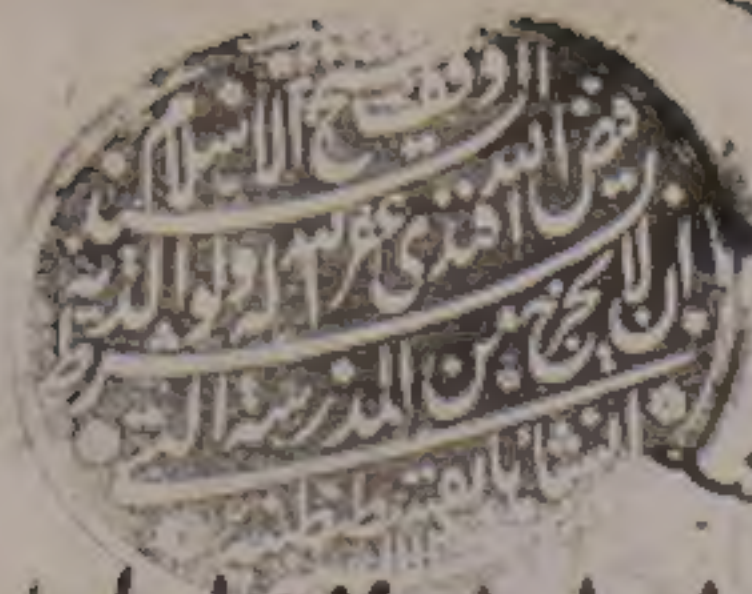 وقف شيخ الاسلام السيد
فيض الله افندى غفر الله له ولوالديه بشرط
ان لا يخرج من المدرسة التى
انشأها بقسطنطينية